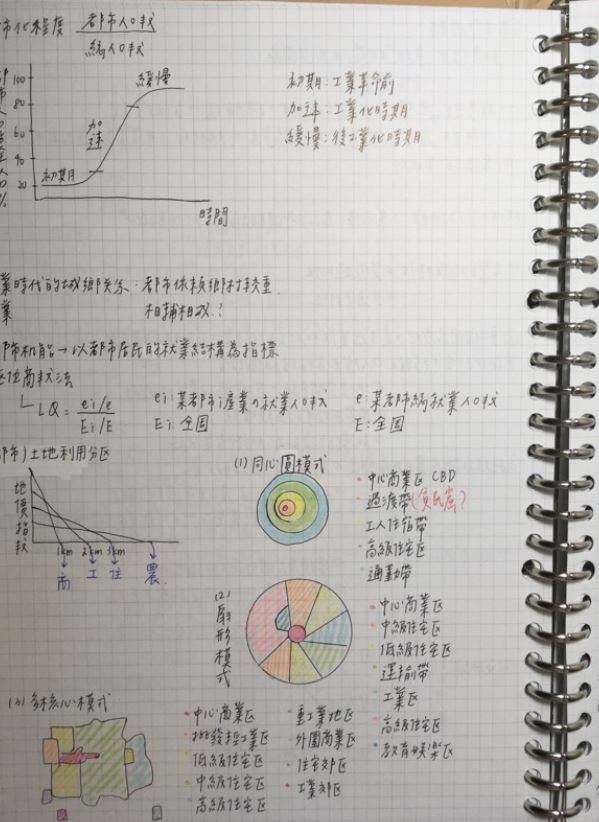 市化程度 都市人口数
總人口数
100
80
60
40
20
初期
加速
緩慢
時間
初期：工業革命前
加速：工業化時期
緩慢：後工業化時期
業時代的城鄉关系：都市依賴鄉村較重
業 相輔相成？
都市机能→以都市居民的就業結構為指標
区位商数法
LQ = ei/e
Ei/E
ei：某都市i產業の就業人口数
Ei：全国
e：某都市總就業人口数
E：全国
都市）土地利用分区
地價指数
1km 2km 3km
商 工 住 農
(1) 同心圓模式
中心商業区 CBD
過渡帶(貧民窟？
工人住宿帶
高級住宅区
通勤帶
(2) 扇形模式
中心商業区
中級住宅区
低級住宅区
運輸帶
工業区
高級住宅区
教育娛樂区
(3) 多核心模式
中心商業区
批發輕工業区
低級住宅区
中級住宅区
高級住宅区
重工業地区
外圍商業区
住宅郊区
工業郊区